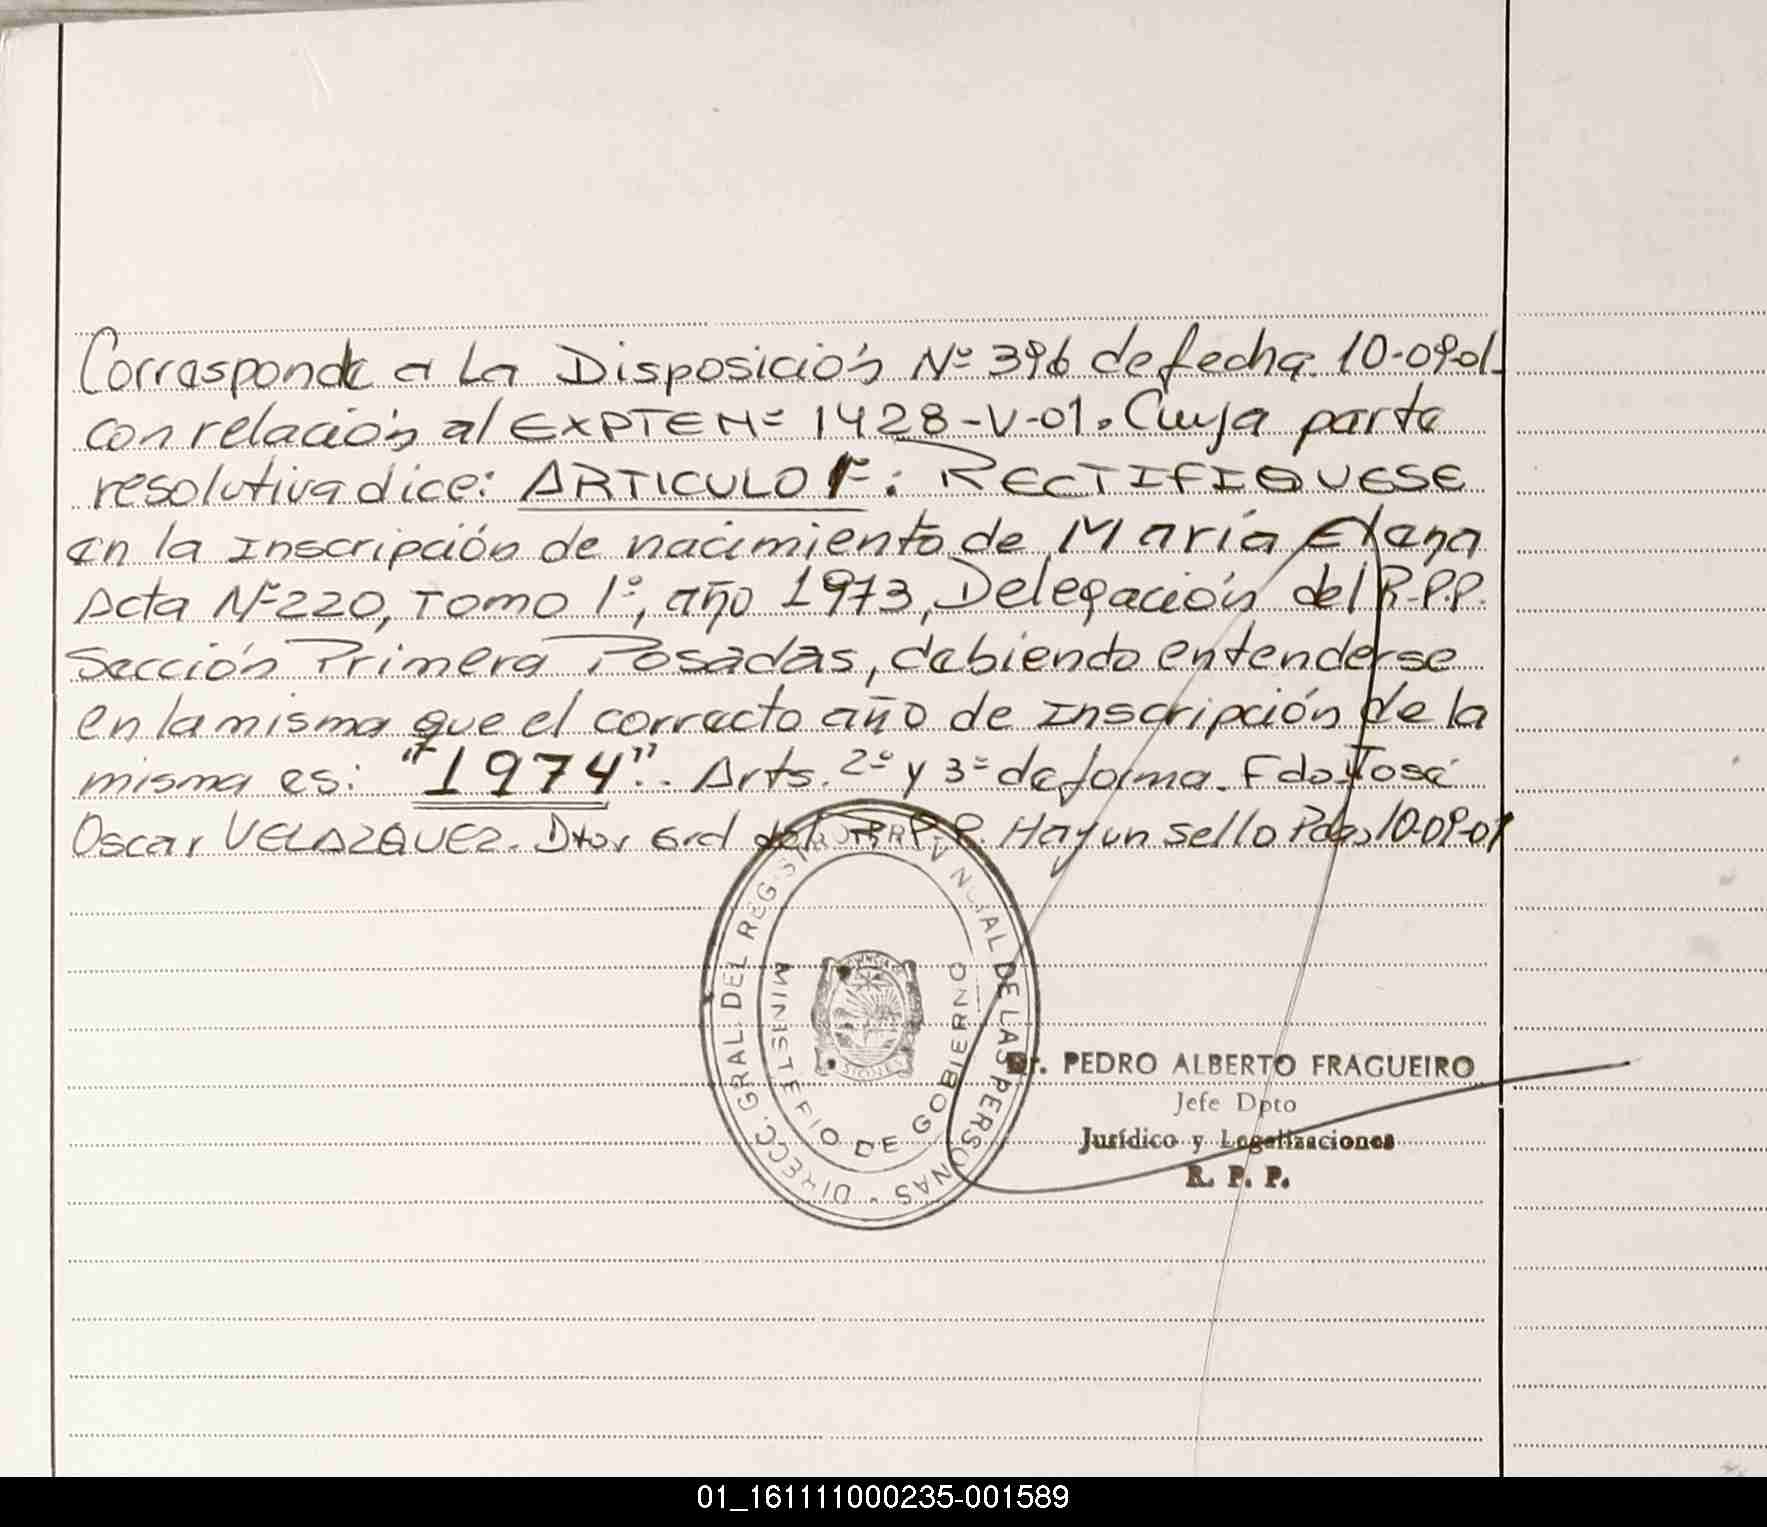 Corresponde a La Disposición Nº 396 de fecha 10-09-01-
con relación al EXPTE Nº 1428-V-01. Cuya parte
resolutiva dice: ARTICULO 1º: RECTIFIQUESE
en la Inscripción de nacimiento de María Elena
Acta Nº 220, Tomo 1º, año 1973, Delegación del R.P.P.
Sección Primera Posadas, debiendo entenderse
en la misma que el correcto año de Inscripción de la
misma es: "1974".- Arts. 2º y 3º de forma. Fdo. José
Oscar VELAZQUEZ. Dtor Grd del R.P.P. Hay un sello Pdas, 10-09-01
DIRECC. GRAL. DEL REGISTRO PROVINCIAL DE LAS PERSONAS -
MINISTERIO DE GOBIERNO
Dr. PEDRO ALBERTO FRAGUEIRO
Jefe Dpto
Jurídico y Legalizaciones
R. P. P.
01_161111000235-001589